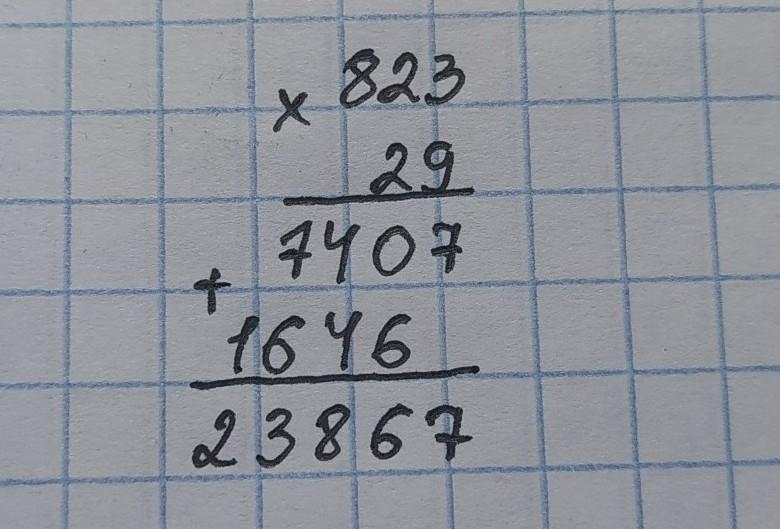 × 823
29
7407
+
1646
23867